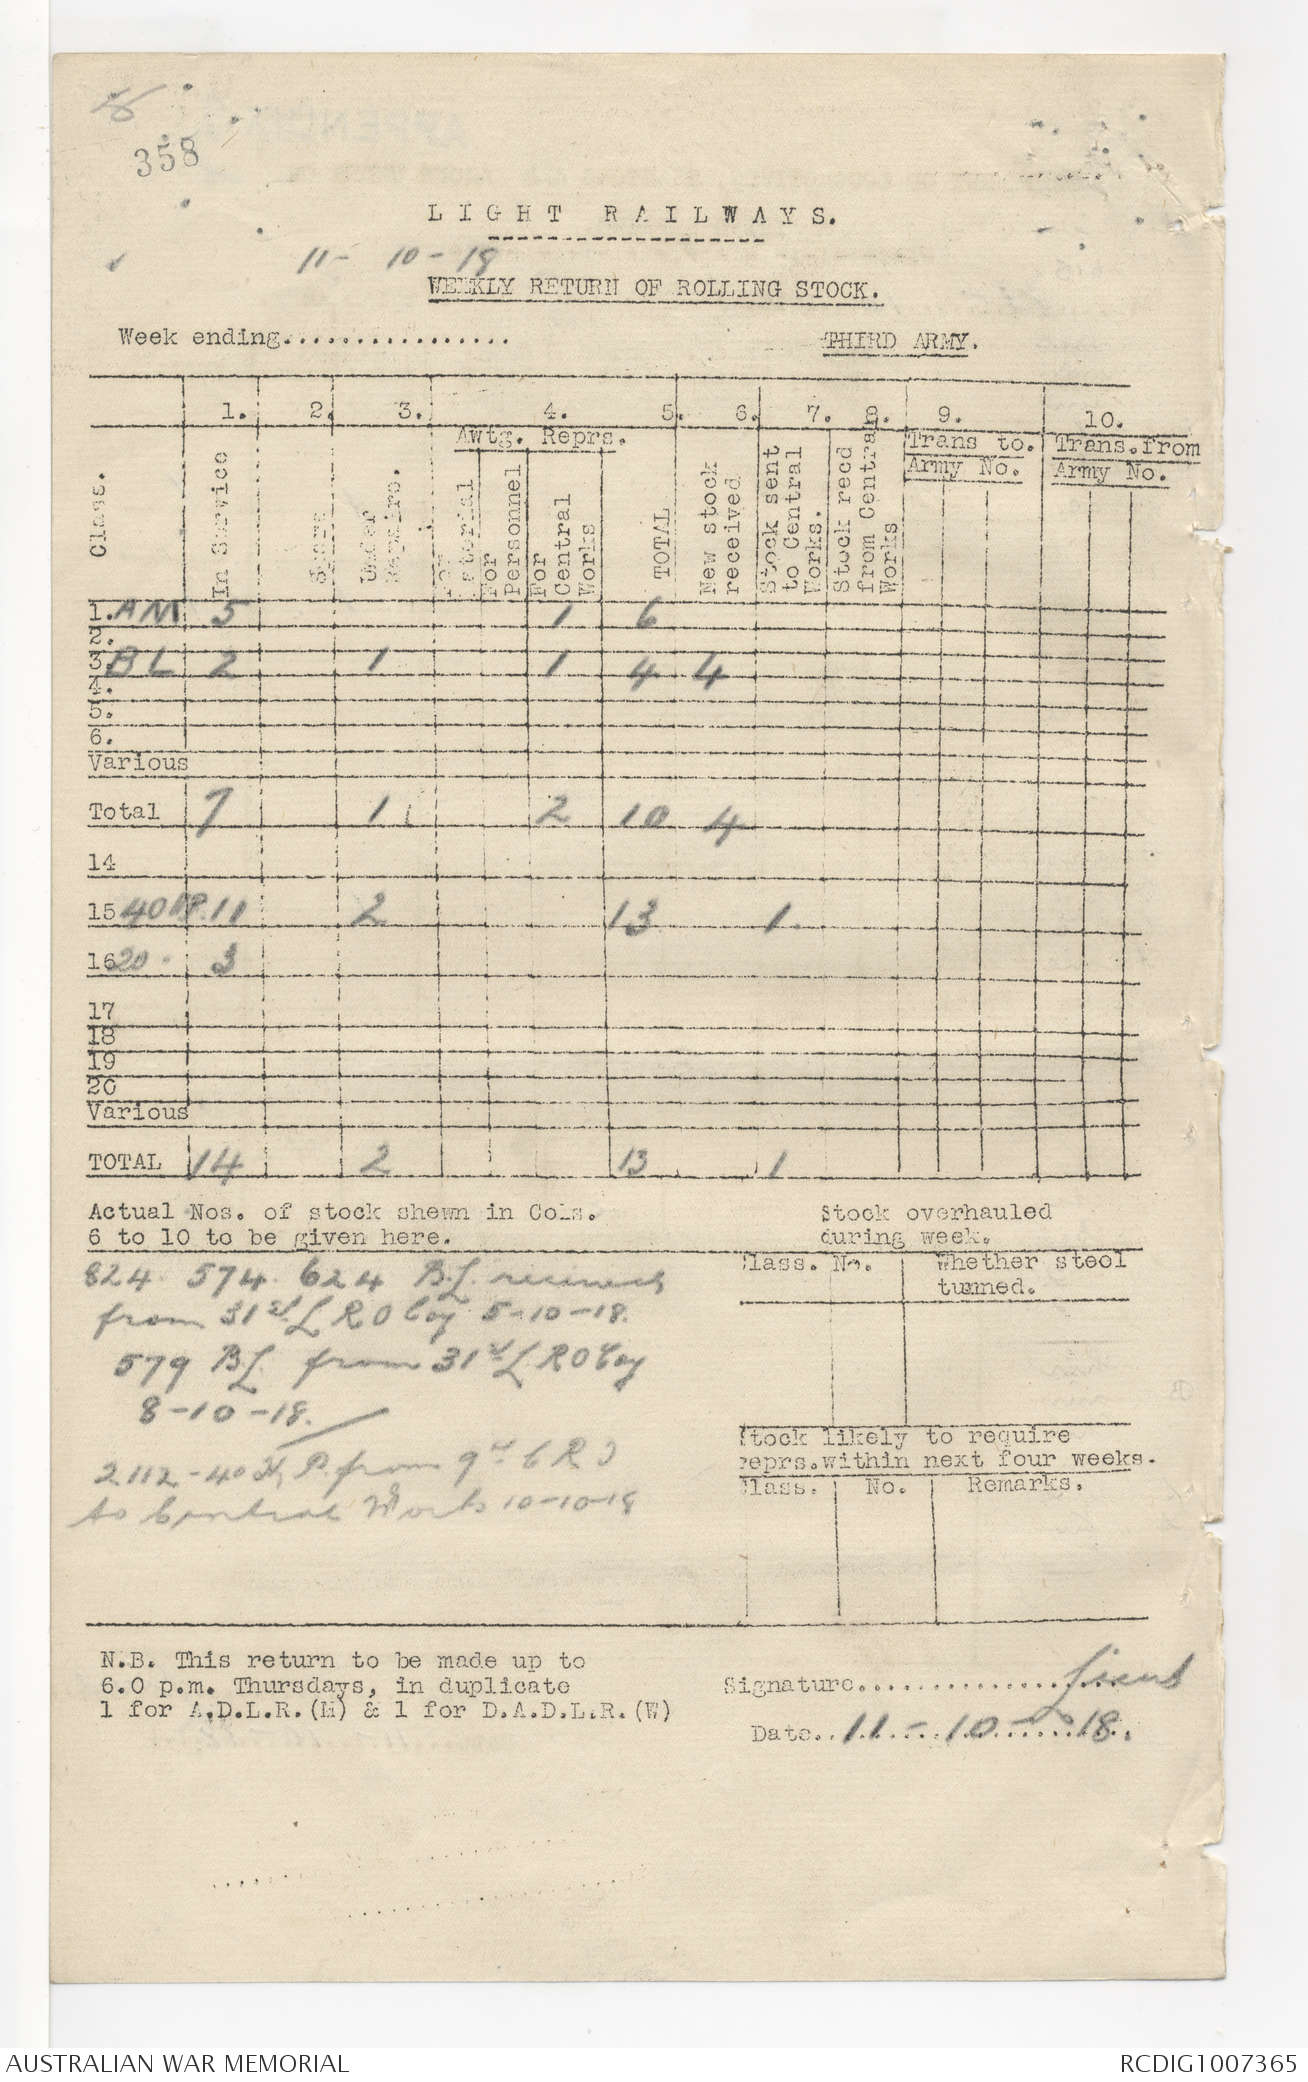 358
LIGHT RAILWAYS.
11- 10-18
WEEKLY RETURN OF ROLLING STOCK.
Week ending................
THIRD ARMY.
1. 2. 3. 4. 5. 6. 7. 8. 9. 10.
Awtg. Reprs.
Trans to. Trans.from
Army No. Army No.
Class.
In Service
Spare
Under Repairs.
For Material
For Personnel
For Central Works
TOTAL
New stock received
Stock sent to Central Works.
Stock recd from Central Works
1. AM 5 1 6
2.
3 BL 2 1 1 4 4
4.
5.
6.
Various
Total 7 1 2 10 4
14
15 40 HP. 11 2 13 1.
16 20 3
17
18
19
20
Various
TOTAL 14 2 13 1
Actual Nos. of stock shewn in Cols.
6 to 10 to be given here.
824 574 624 B.L. received
from 31st L R O Coy 5-10-18.
579 BL. from 31st L R O Coy
8-10-18.
2112-40 H.P. from 9th
to Central Works 10-10-18
Stock overhauled
during week.
Class. No. Whether steel
turned.
Stock likely to require
reprs.within next four weeks.
Class. No. Remarks.
N.B. This return to be made up to
6.0 p.m. Thursdays, in duplicate
1 for A.D.L.R.(M) & 1 for D.A.D.L.R.(W)
Signature.................. Lieut
Date..11-10-18.
AUSTRALIAN WAR MEMORIAL
RCDIG1007365